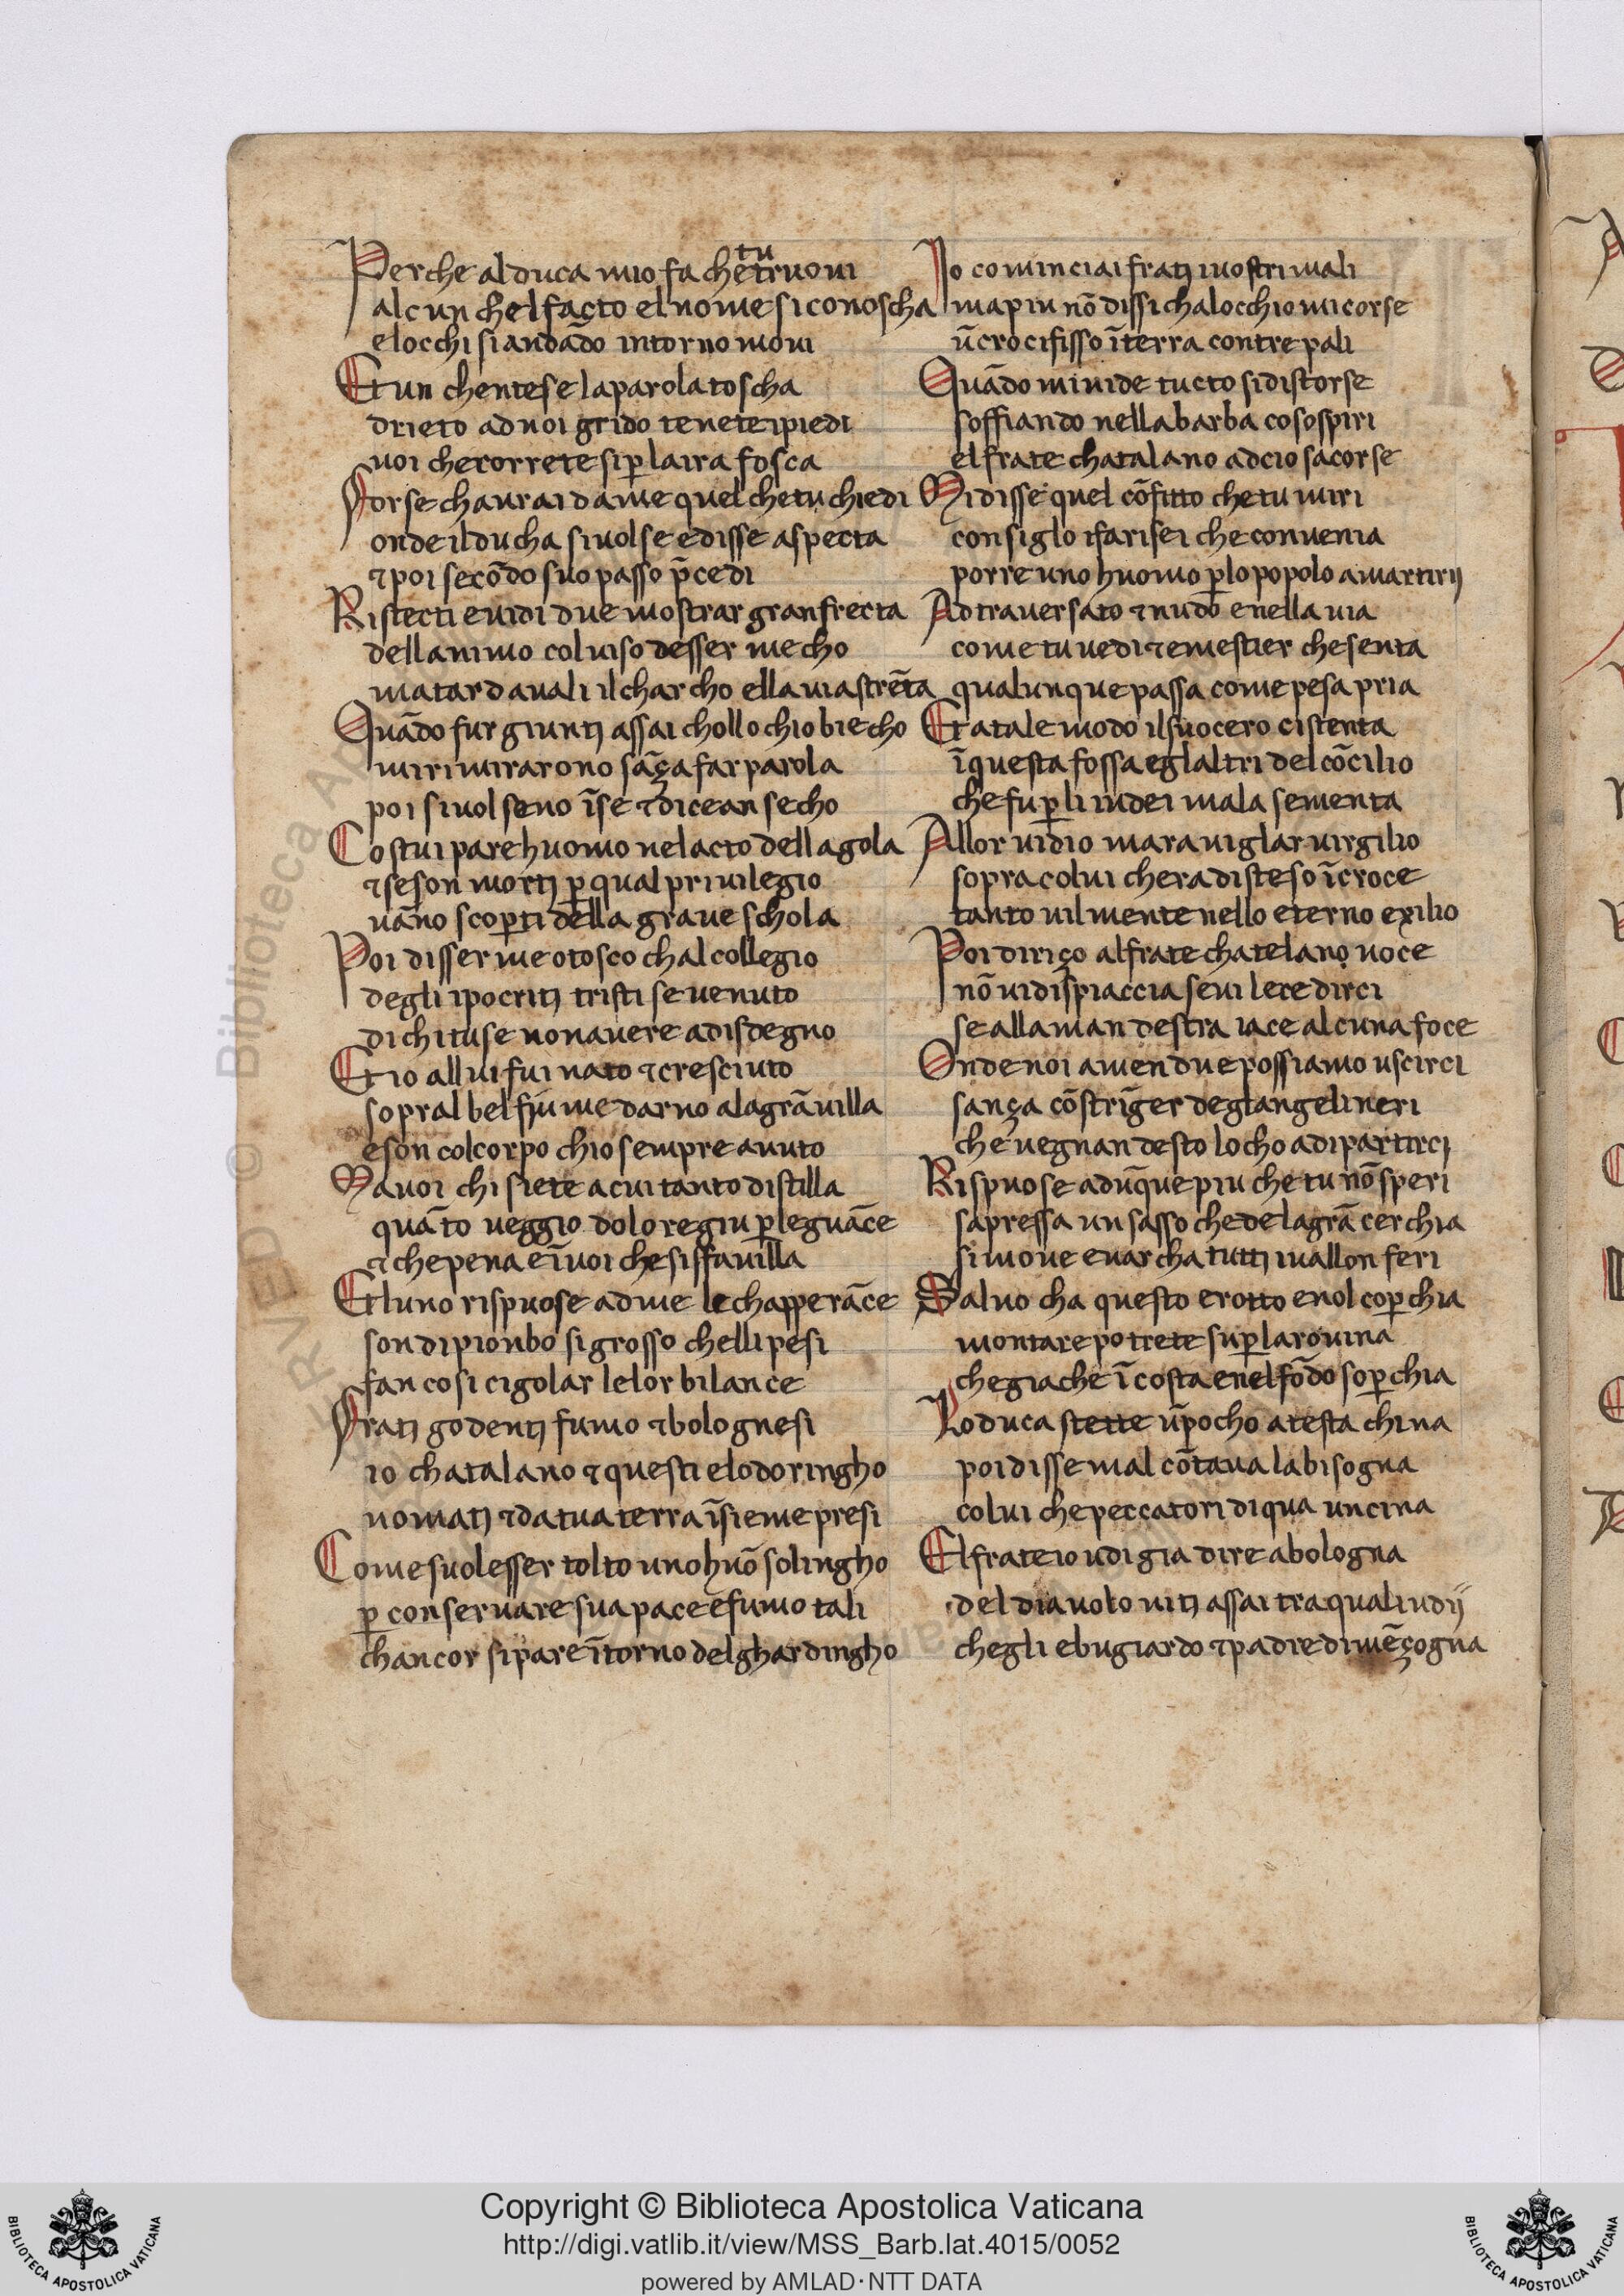 Perche alduca mio fa che tu truovi
alcun chel facto el nome si conoscha
elocchi si andādo intorno movi
Et un chentese laparola toscha
drieto ad noi grido tenete ipiedi
uoi che correte si ꝑ laira fosca
Forse chaurai dame quel che tu chiedi
onde il ducha si uolse e disse aspecta
⁊ poi secōdo suo passo p̄cedi
Ristecti e uidi due mostrar gran frecta
dellanimo col uiso desser mecho
ma tardauali il charcho ella uia strēta
Quādo fur giunti assai chollochio biecho
mi rimirarono sāça far parola
poi si uolseno īse ⁊ dicean secho
Costui pare huomo nel acto della gola
⁊ se son morti ꝑ qual priuilegio
uāno scoꝑti della graue schola
Poi disser me o tosco chal collegio
degli ipocriti tristi se uenuto
di chi tu se non auere a disdegno
Et io allui fui nato ⁊ cresciuto
sopral bel fiume darno ala grā uilla
e son col corpo chio sempre auuto
Ma uoi chi siete a cui tanto distilla
quāto ueggio dolore giu ꝑ le guāce
⁊ che pena e ī uoi che si ffauilla
Et luno rispuose ad me le chappe rāce
son di pionbo si grosso che lli pesi
fan cosi cigolar le lor bilance
Frati godenti fumo ⁊ bolognesi
io chatalano ⁊ questi elodoringho
nomati ⁊ da tua terra īsieme presi
Come suol esser tolto uno huō solingho
ꝑ conseruare sua pace e fumo tali
chancor si pare ītorno del ghardingho
Io cominciai frati i uostri mali
ma piu nō dissi chalocchio mi corse
ū crocifisso ī terra con tre pali
Quādo mi uide tucto si distorse
soffiando nella barba co sospiri
el frate chatalano ad cio sacorse
Mi disse quel cōfitto che tu miri
consiglo i farisei che conuenia
porre uno huomo ꝑ lo popolo a martirij
Ad trauersato ⁊ nudo e nella uia
come tu uedi ⁊ e mestier che senta
qualunque passa come pesa pria
Et a tale modo il suocero ci stenta
ī questa fossa e gl altri del cōcilio
che fu ꝑ li iudei mala sementa
Allor uidio marauiglar uirgilio
sopra colui chera disteso ī croce
tanto uilmente nello eterno exilio
Poi diriço al frate chatelano uoce
nō ui dispiaccia se ui lece dirci
se alla man destra iace alcuna foce
Onde noi amendue possiamo uscirci
sança cōstrīger de gl angeli neri
che uegnan desto locho a dipartirci
Rispuose adūque piu che tu nō speri
sapressa un sasso che de la grā cerchia
si moue e uarcha tutti i uallon feri
Saluo cha questo e rotto e nol coꝑchia
montare potrete su ꝑ la rouina
che giache ī costa e nel fōdo soꝑchia
Lo duca stette ū pocho a testa china
poi disse mal cōtaua la bisogna
colui che peccatori di qua uncina
El frate io udi gia dire a bologna
del diauolo uiti assai tra quali udij
chegli e bugiardo ⁊ padre di mēçogna
Copyright © Biblioteca Apostolica Vaticana
http://digi.vatlib.it/view/MSS_Barb.lat.4015/0052
powered by AMLAD·NTT DATA